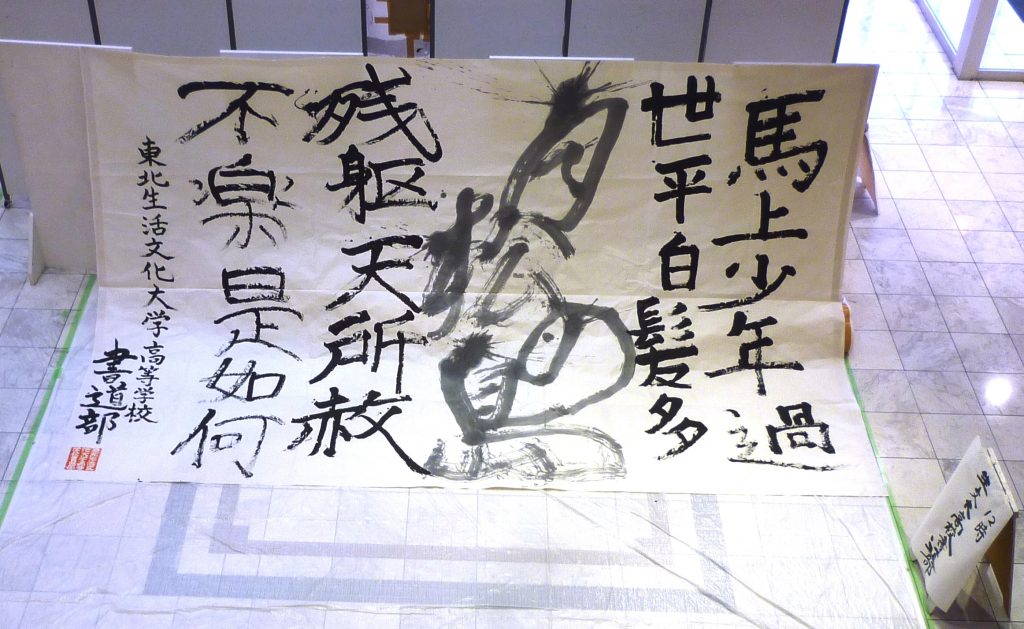 馬上少年過
世平白髪多
残躯天所赦
不楽是如何
東北生活文化大学高等学校
書道部